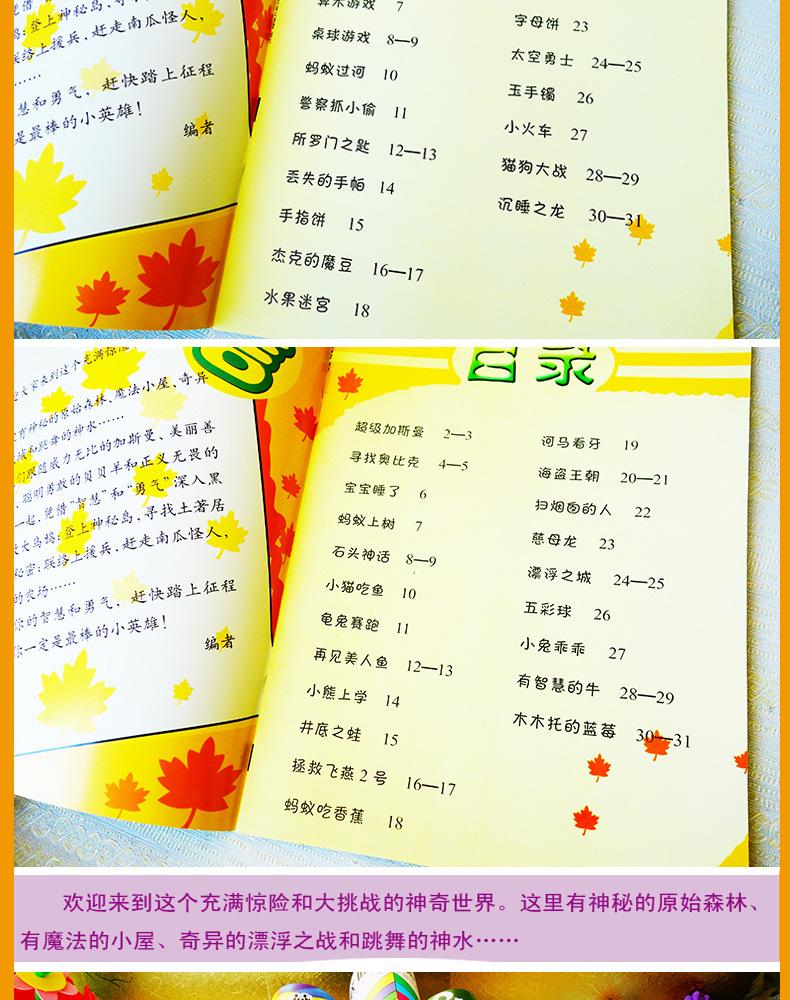 登上神秘岛
联络上援兵,赶走南瓜怪人,
……
慧和勇气,赶快踏上征程
是最棒的小英雄!
编者
游戏 7
桌球游戏 8—9
蚂蚁过河 10
警察抓小偷 11
所罗门之匙 12—13
丢失的手帕 14
手指饼 15
杰克的魔豆 16—17
水果迷宫 18
字母饼 23
太空勇士 24—25
玉手镯 26
小火车 27
猫狗大战 28—29
沉睡之龙 30—31
来到这个充满惊险
有神秘的原始森林、魔法小屋、奇异
和跳舞的神水……
跟随威力无比的加斯曼、美丽善
、聪明勇敢的贝贝羊和正义无畏的
一起,凭借“智慧”和“勇气”深入黑
大乌鸦;登上神秘岛,寻找土著居
秘密;联络上援兵,赶走南瓜怪人,
的农场……
你的智慧和勇气,赶快踏上征程
你一定是最棒的小英雄!
编者
目录
超级加斯曼 2—3
寻找奥比克 4—5
宝宝睡了 6
蚂蚁上树 7
石头神话 8—9
小猫吃鱼 10
龟兔赛跑 11
再见美人鱼 12—13
小熊上学 14
井底之蛙 15
拯救飞燕2号 16—17
蚂蚁吃香蕉 18
河马看牙 19
海盗王朝 20—21
扫烟囱的人 22
慈母龙 23
漂浮之城 24—25
五彩球 26
小兔乖乖 27
有智慧的牛 28—29
木木托的蓝莓 30—31
欢迎来到这个充满惊险和大挑战的神奇世界。这里有神秘的原始森林、
有魔法的小屋、奇异的漂浮之战和跳舞的神水……